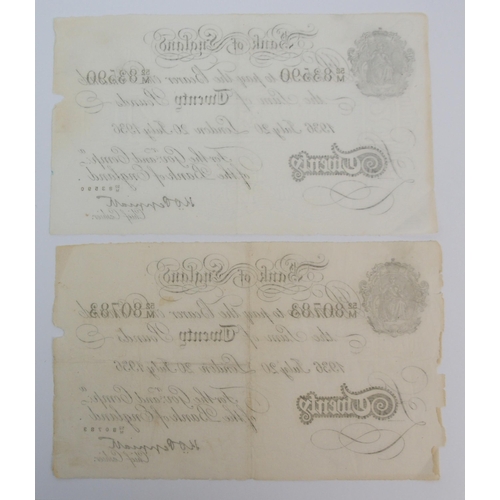 Bank of England
83590 to pay the Bearer 83590
the Sum of Twenty Pounds
1936 July 20 London 20 July 1936
For the Gov: and Comp:
Twenty of the Bank of England
Chief Cashier
Bank of England
80783 to pay the Bearer 80783
the Sum of Twenty Pounds
1936 July 20 London 20 July 1936
For the Gov: and Comp:
Twenty of the Bank of England
Chief Cashier